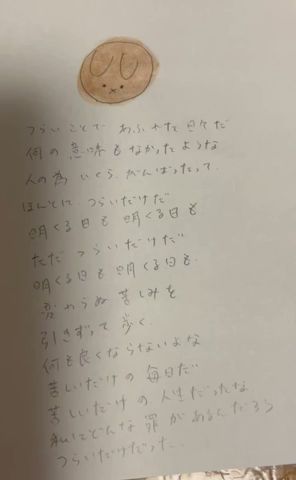 つらいことで あふれた日々だ
何の意味もなかったような
人の為 いくら がんばったって
ほんとに つらいだけだ
明くる日も 明くる日も
ただ つらいだけだ
明くる日も 明くる日も
変わらぬ苦しみを
引きずって歩く
何も良くならないよな
苦しいだけの毎日だ
苦しいだけの人生だったな
私にどんな罪があるんだろう
つらいだけだった